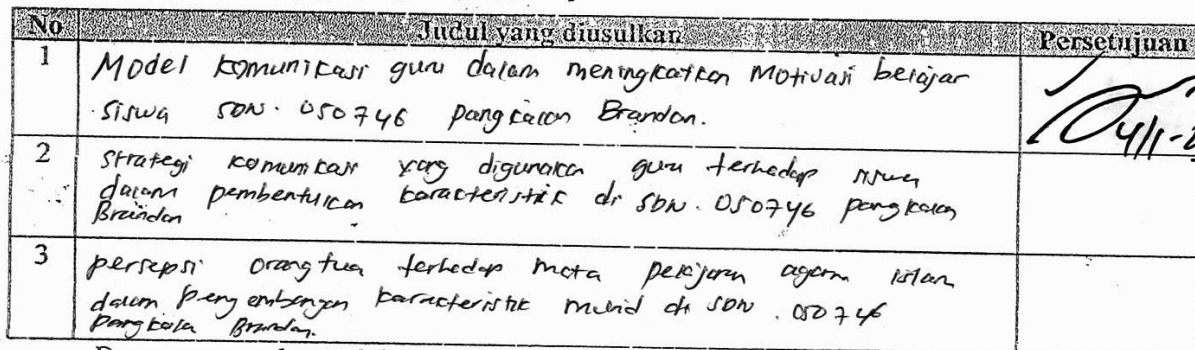 No Judul yang diusulkan Persetujuan
1 Model komunikasi guru dalam meningkatkan Motivasi belajar
siswa SDN. 050746 pangkalan Brandan.
4/1-2
2 strategi komunikasi yang digunakan guru terhadap siswa
dalam pembentukan karakteristik di SDN. 050746 pangkalan
Brandan
3 persepsi orang tua terhadap mata pelajaran agama islam
dalam pengembangan karakteristik murid di SDN. 050746
pangkalan Brandan.